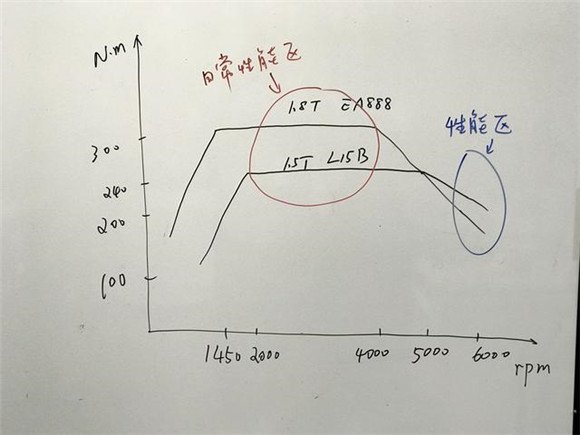 N·m
日常性能区
1.8T EA888
性能区
300
1.5T L15B
240
200
100
1450 2000 4000 5000 6000
rpm